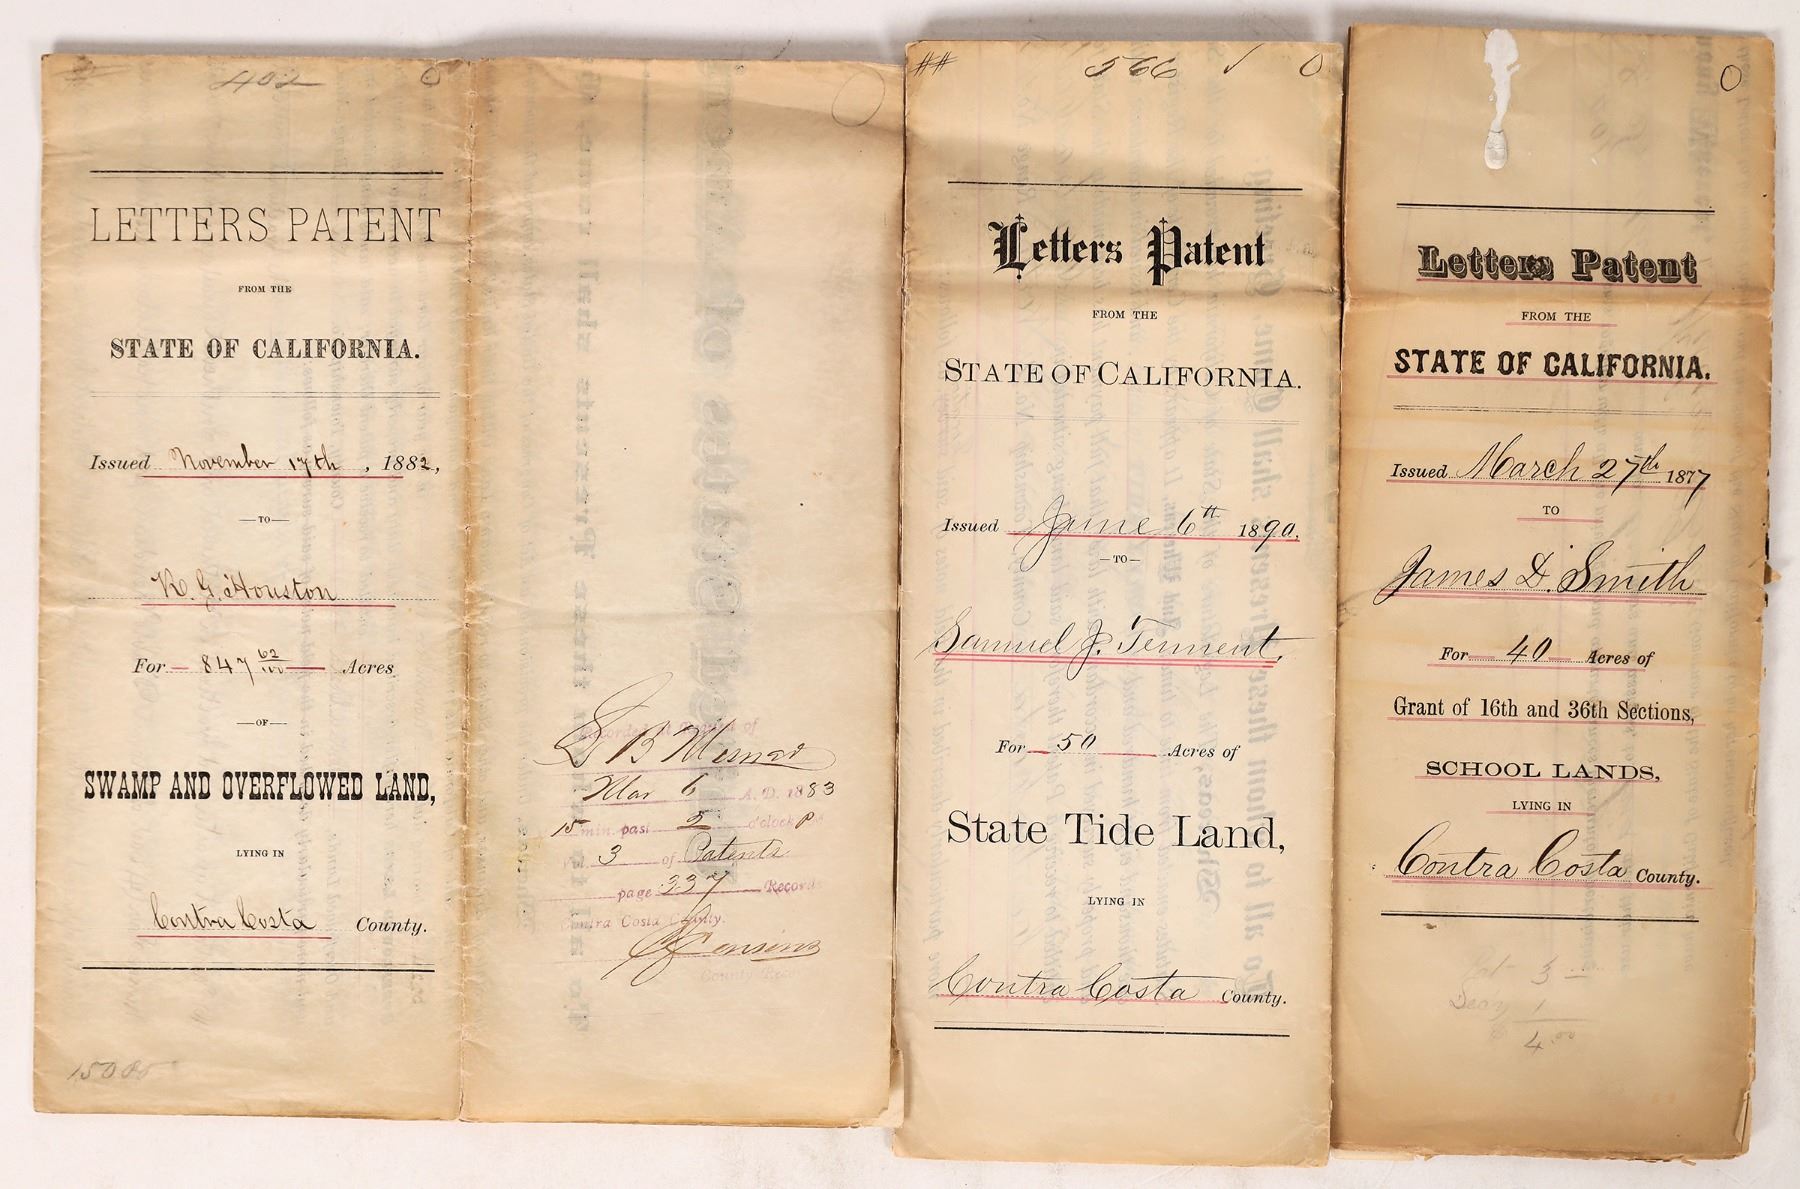 402
LETTERS PATENT
FROM THE
STATE OF CALIFORNIA.
Issued November 17th, 1882,
—TO—
R. G. Houston
For 847 62/100 Acres
—OF—
SWAMP AND OVERFLOWED LAND,
LYING IN
Contra Costa County.
Recorded at Request of
Mar 6 A.D. 1883
15 min. past 5 o'clock P
3 of Patents
page 337 Records
Contra Costa County.
County
## 566 ✓
Letters Patent
FROM THE
STATE OF CALIFORNIA.
Issued June 6th 1890.
—TO—
Samuel J. Tennent,
For 50 Acres of
State Tide Land,
LYING IN
Contra Costa County.
Letters Patent
FROM THE
STATE OF CALIFORNIA.
Issued March 27th 1877
TO
James D. Smith
For 40 Acres of
Grant of 16th and 36th Sections,
SCHOOL LANDS,
LYING IN
Contra Costa County.
3
1
4.00